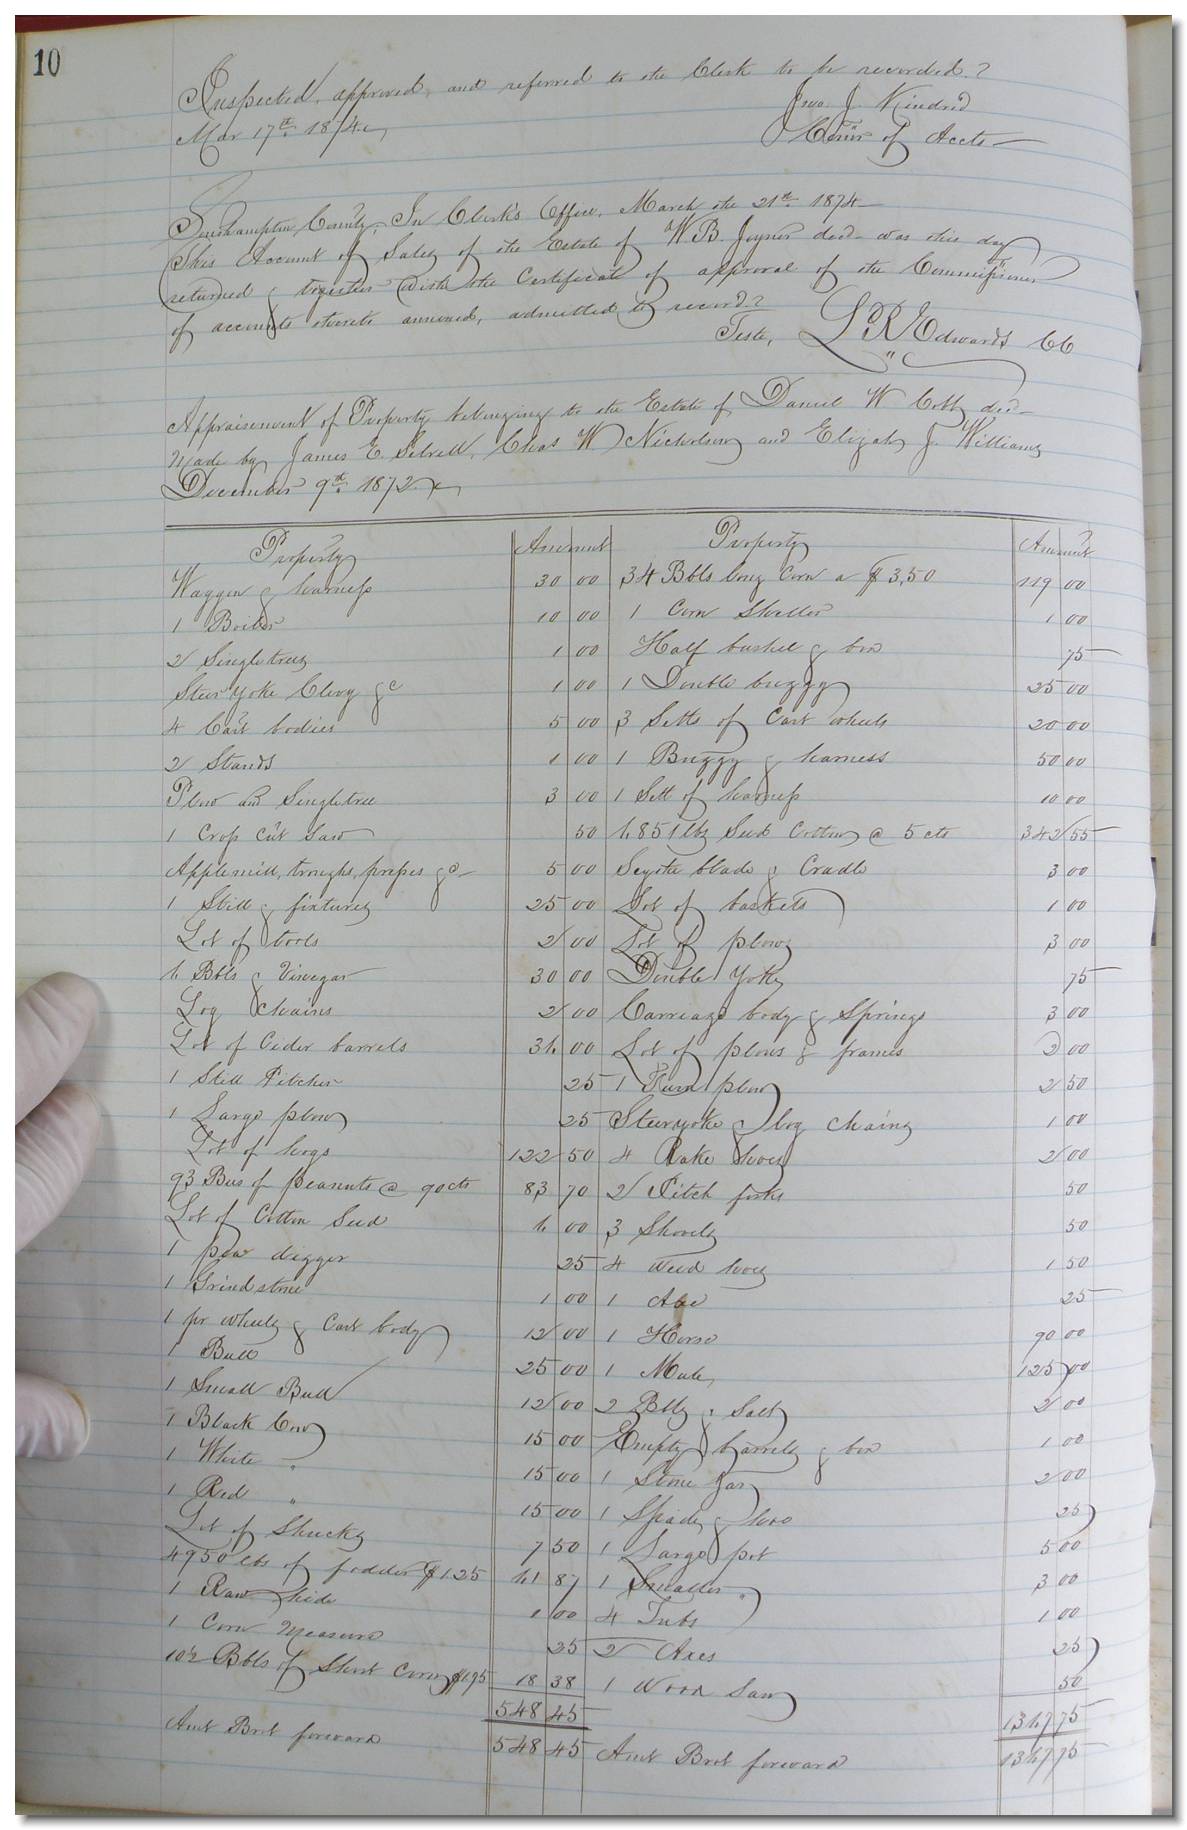 10
Inspected, approved, and referred to the Clerk to be recorded.
Jno. J. Kindred
Mar 17th 1874
Comr of Accts
Southampton County, In Clerk's Office, March the 21st 1874
This Account of Sales of the Estate of W B. Joyner decd was this day
returned & together with the Certificate of approval of the Commissioner
of accounts thereto annexed, admitted to record.
Teste, L R Edwards CC
Appraisement of Property belonging to the Estate of Daniel W Cobb decd
Made by James E. Sebrell, Chas W Nicholson and Elijah J. Williams
December 9th 1872
Property Amount Property Amount
Waggon & harness 30 00 34 Bbls long Corn a $3,50 119 00
1 Boiler 10 00 1 Corn Sheller 1 00
2 Singletrees 1 00 Half bushel & box 75
Steer Yoke Clevy &c 1 00 1 Double buggy 25 00
4 Cart bodies 5 00 3 Setts of Cart wheels 20 00
2 Stands 1 00 1 Buggy & harness 50 00
Plow and Singletree 3 00 1 Sett of harness 10 00
1 Crop cut Saw 50 6851 lbs Seed Cotton @ 5 cts 342 55
Applemill, troughs, presses &c 5 00 Scythe blade & Cradle 3 00
1 Still & fixtures 25 00 Lot of baskets 1 00
Lot of tools 2 00 Lot of plows 3 00
6 Bbls & Vinegar 30 00 Double Yoke 75
Log chains 2 00 Carriage body & Springs 3 00
Lot of Cider barrels 36 00 Lot of plows & frames 2 00
1 Still Pitcher 25 1 Turn plow 2 50
1 Large plow 25 Steeryoke & log chains 1 00
Lot of hogs 122 50 4 Rake hoes 2 00
93 Bus of peanuts @ 90cts 83 70 2 Pitch forks 50
Lot of Cotton Seed 6 00 3 Shovels 50
1 pea digger 25 4 Weed hoes 1 50
1 Grindstone 1 00 1 Axe 25
1 pr wheels & Cart body 12 00 1 Horse 90 00
1 Bull 25 00 1 Mule 125 00
1 Small Bull 12 00 2 Bbls & Salt 2 00
1 Black Cow 15 00 Empty barrels & box 1 00
1 White " 15 00 1 Stone Jar 2 00
1 Red " 15 00 1 Spade & hoe 25
Lot of Shucks 7 50 1 Large pot 5 00
4950 lbs of fodder $1.25 61 87 1 Smaller " 3 00
1 Raw hide 1 00 4 Tubs 1 00
1 Corn Measure 25 2 Axes 25
10½ Bbls of Short Corn $1.75 18 38 1 Wood Saw 50
548 45 1367 75
Amt Brot forward 548 45 Amt Brot forward 1367 75